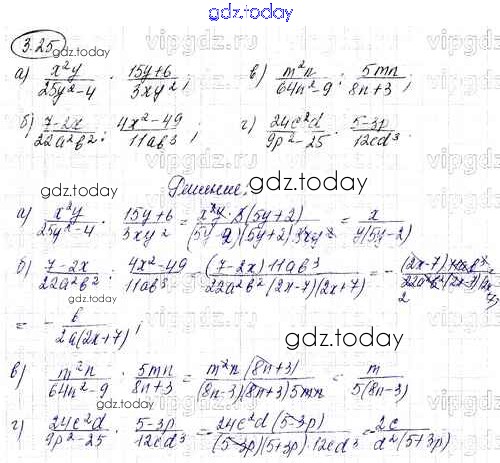 3.25
gdz.today
а) x²y/(25y²-4) · (15y+6)/(3xy²);   в) m²n/(64n²-9) : 5mn/(8n+3);
б) (7-2x)/(22a²b²) : (4x²-49)/(11ab³);   г) 24c²d/(9p²-25) · (5-3p)/(12cd³)
gdz.today
Решение:
gdz.today
а) x²y/(25y²-4) · (15y+6)/(3xy²) = x²y·3(5y+2)/((5y-2)(5y+2)3xy²) = x/(y(5y-2))
б) (7-2x)/(22a²b²) : (4x²-49)/(11ab³) = (7-2x)11ab³/(22a²b²(2x-7)(2x+7)) = -(2x-7)11ab³/(22a²b²(2x-7)(2x+7))
= - b/(2a(2x+7));
gdz.today
в) m²n/(64n²-9) : 5mn/(8n+3) = m²n(8n+3)/((8n-3)(8n+3)5mn) = m/(5(8n-3))
г) 24c²d/(9p²-25) · (5-3p)/(12cd³) = 24c²d(5-3p)/((5-3p)(5+3p)·12cd³) = 2c/(d²(5+3p))
gdz.today